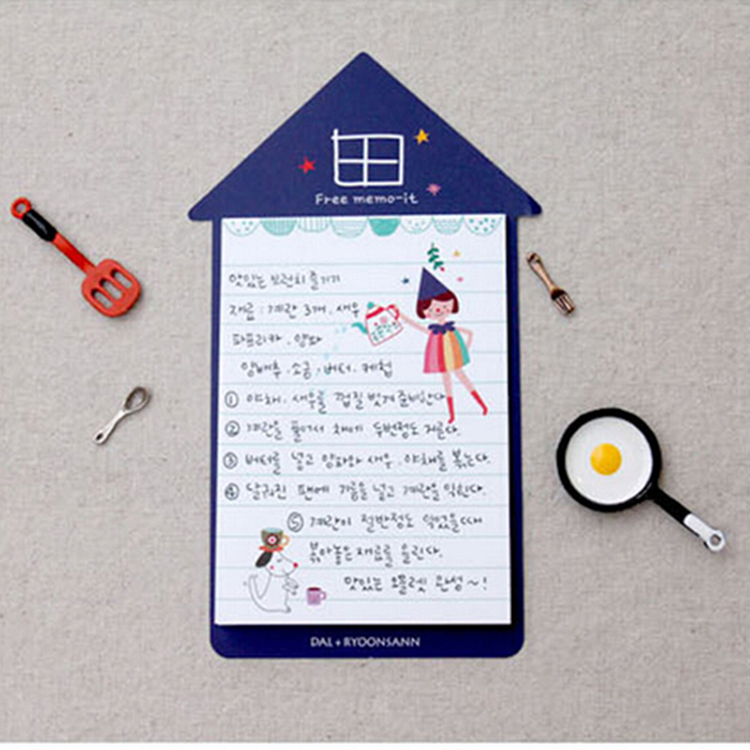 Free memo-it
맛있는 브런치 즐기기
재료 : 계란 3개 . 새우
파프리카 . 양파
양배추 . 소금 . 버터 . 케첩
① 야채 . 새우를 껍질 벗겨 준비한다.
② 계란을 풀어서 채에 두번정도 거른다.
③ 버터를 넣고 양파와 새우 . 야채를 볶는다.
④ 달궈진 팬에 기름을 넣고 계란을 익힌다.
⑤ 계란이 절반정도 익었을때
볶아놓은 재료를 올린다.
맛있는 오믈렛 완성~!
DAL + RYOONSANN